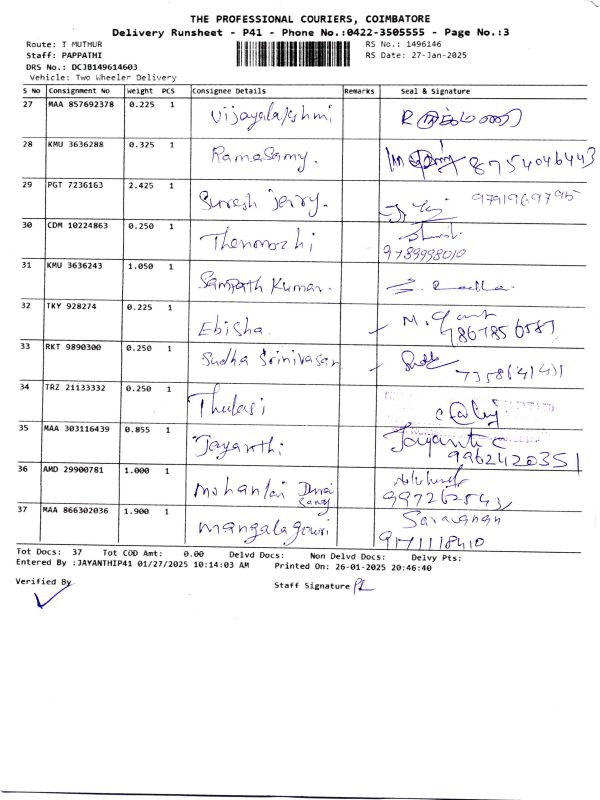 THE PROFESSIONAL COURIERS, COIMBATORE
Delivery Runsheet - P41 - Phone No.:0422-3505555 - Page No.:3
Route: T MUTHUR RS No.: 1496146
Staff: PAPPATHI RS Date: 27-Jan-2025
DRS No.: DCJB149614603
Vehicle: Two Wheeler Delivery
S No Consignment No Weight PCS Consignee Details Remarks Seal & Signature
27 MAA 857692378 0.225 1 Vijayalakshmi
28 KMU 3636288 0.325 1 Ramasamy. 8754046443
29 PGT 7236163 2.425 1 Suresh jerry. 9791969795
30 CDM 10224863 0.250 1 Thenmozhi
9789998010
31 KMU 3636243 1.050 1 Sampath Kumar.
32 TKY 928274 0.225 1 Ebisha.
33 RKT 9890300 0.250 1 Sudha Srinivasan
34 TRZ 21133332 0.250 1 Thulasi
35 MAA 303116439 0.855 1 Jayanthi Jayanthi C
9962420351
36 AMD 29900781 1.000 1 Mohanlai
37 MAA 866302036 1.900 1 Mangalagowri Saravanan
Tot Docs: 37 Tot COD Amt: 0.00 Delvd Docs: Non Delvd Docs: Delvy Pts:
Entered By :JAYANTHIP41 01/27/2025 10:14:03 AM Printed On: 26-01-2025 20:46:40
Verified By Staff Signature